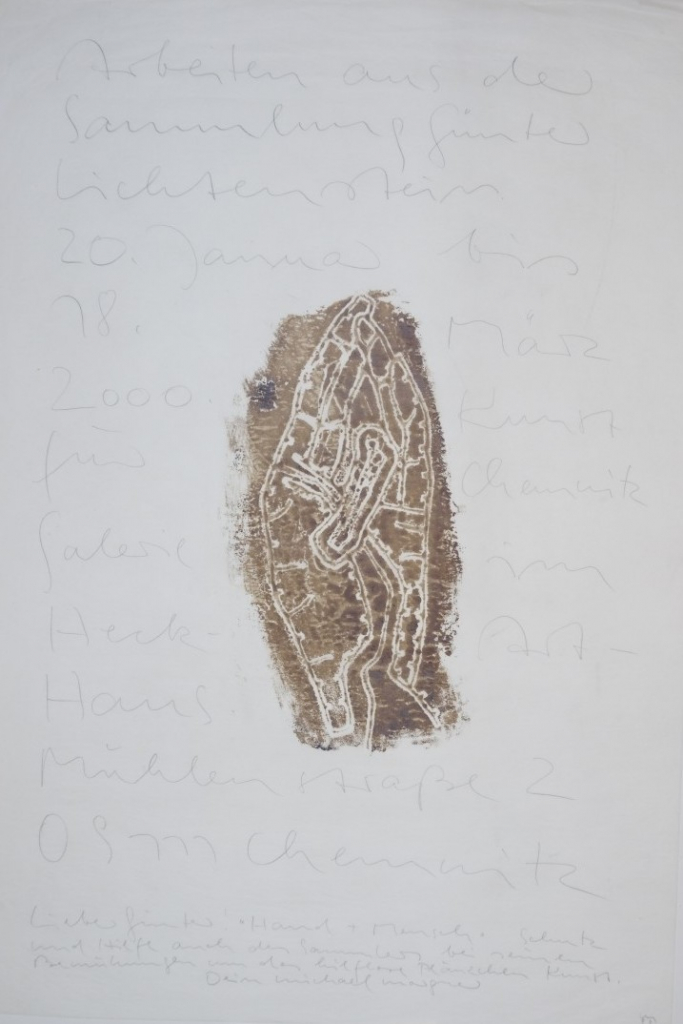 Arbeiten aus der
Sammlung Günter
Lichtenstein
20. Januar bis
18. März
2000. Kunst
für Chemnitz
Galerie im
Heck- Art-
Haus.
Mühlenstraße 2
09111 Chemnitz
Lieber Günter: "Hand + Mensch" Schutz
und Hilfe auch den Sammlern bei seinen
Bemühungen um das hilflose Kunst.
Dein michael morgner